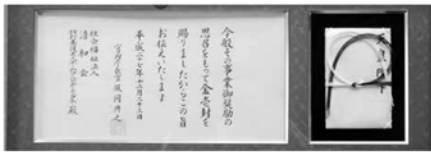 今般その事業御奨励の
思召をもって金壱封を
賜りましたからこの旨
お伝えいたします
平成二十七年十二月二十三日
宮内庁長官風岡典之
社会福祉法人
清和会
殿